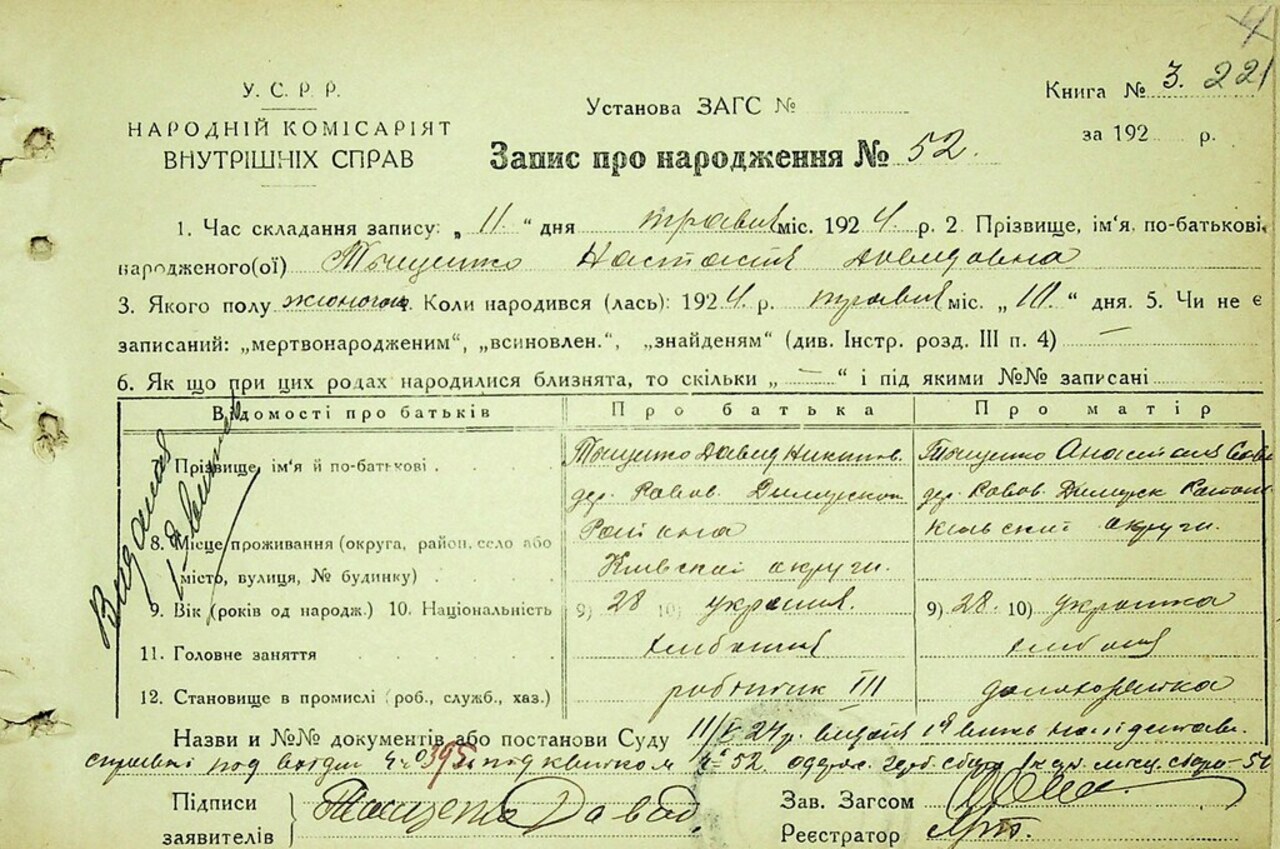 У. С. Р. Р.
НАРОДНІЙ КОМІСАРІЯТ
ВНУТРІШНІХ СПРАВ
Установа ЗАГС №
Книга № 3. 221
за 192 р.
Запис про народження № 52.
1. Час складання запису: „ 11 “ дня травня міс. 192 4 р. 2. Прізвище, ім'я, по-батькові
народженого(ої) Тыщенко Настасия Давидовна
3. Якого полу жоночого. Коли народився (лась): 192 4 р. травня міс. „ III “ дня. 5. Чи не є
записаний: „мертвонародженим“, „всиновлен.“, „знайденям“ (див. Інстр. розд. III п. 4) —
6. Як що при цих родах народилися близнята, то скільки „ — “ і під якими №№ записані
Відомості про батьків Про батька Про матір
Прізвище ім'я й по-батькові Тыщенко Давид Никитов. Тыщенко
8. Місце проживання (округа, район, село або
місто, вулиця, № будинку)
дер. Димерского
Района
Киевской округи.
дер. Димерск Района
киевский округи.
9. Вік (років од народж.) 10. Національність 9) 28 10) украиня. 9) 28. 10) украинка
11. Головне заняття
12. Становище в промислі (роб., служб., хаз.) робітник III домохозяйка
Назви и №№ документів або постанови Суду 11/V 24 р.
під квитком № 52.
Підписи
заявителів
Тищенко Давид
Зав. Загсом
Реєстратор